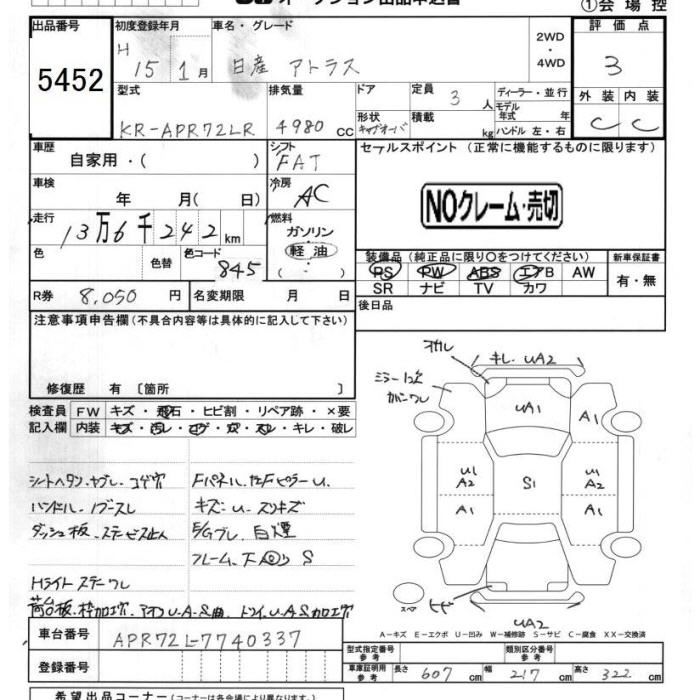 オークション出品申込書
①会場控
出品番号 初度登録年月 車名・グレード 2WD・4WD 評価点
5452 H 15 1月 日産 アトラス 3
型式 排気量 ドア 定員 3 人 ディーラー・並行 外装 内装
モデル年式 年
KR-APR72LR 4980 cc 形状 キャブオーバ 積載 kg ハンドル 左・右 C C
車歴 シフト セールスポイント(正常に機能するものに限ります)
自家用・( ) FAT
車検 冷房
年 月( 日) AC NOクレーム・売切
走行 燃料
13万6千242km ガソリン
色 色替 色コード 845 軽油 ( ・ )
装備品(純正品に限り○をつけてください) 新車保証書
PS PW ABS エアB AW 有・無
SR ナビ TV カワ
R券 8,050円 名変期限 月 日 後日品
注意事項申告欄(不具合内容等は具体的に記入して下さい)
修復歴 有〔箇所 〕
検査員 FW キズ・飛石・ヒビ割・リペア跡・×要
記入欄 内装 キズ・汚レ・コゲ・穴・スレ・キレ・破レ
キレ・UA2
ミラーココ
UA1 A1
U1 A2 S1 U1 A2
A1 A1
シートヘタン・ヤブレ・コゲ穴 Fパネル、左Fピラーu.
ハンドル・ノブスレ キズ・u.スリキズ
ダッシュ板・ステービス止人 E/Gブレ、白煙
フレーム、下回り S
Hライトステーワレ
荷台板・枠加工穴
スペア UA2
A-キズ E-エクボ U-凹み W-補修跡 S-サビ C-腐食 XX-交換済
車台番号 APR72L-7740337
型式指定番号 参考 類別区分番号 参考
登録番号 車庫証明用 参考 長さ 607cm 幅 217cm 高さ 322cm
希望出品コーナー(コーナーは各会場により異なります)